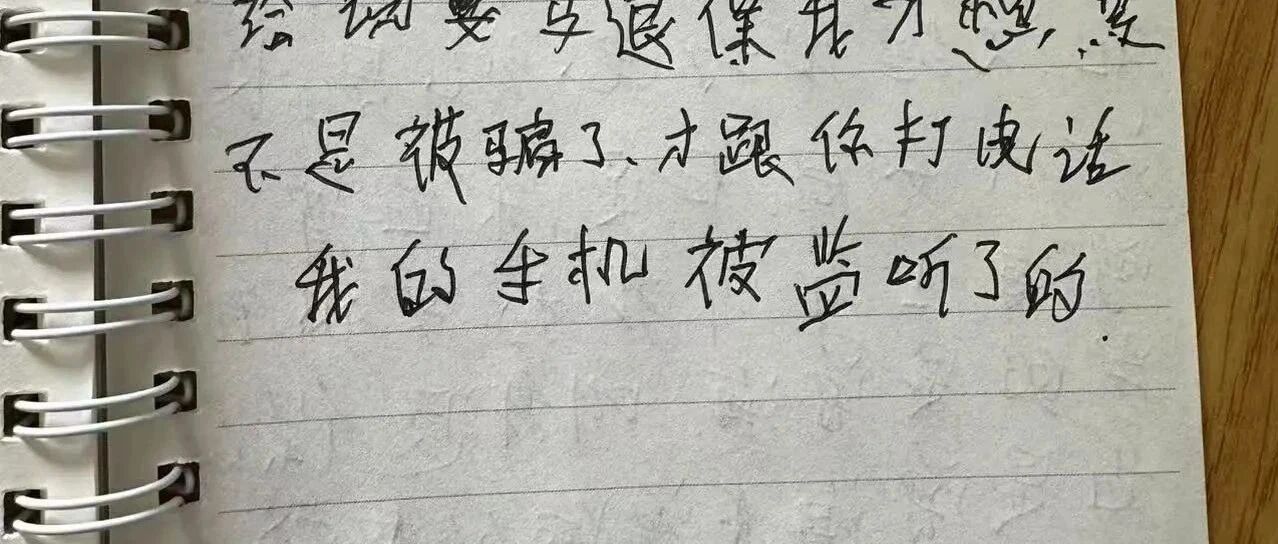 给 要 退保我才想,是
不是被骗了、才跟你打电话
我的手机被监听了的.